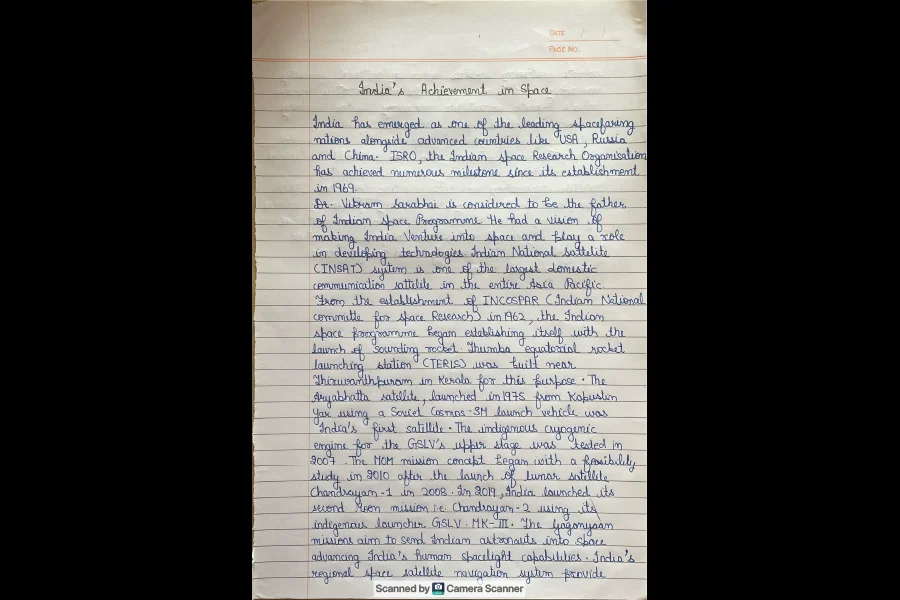 DATE / /
PAGE NO.
India's Achievement in Space
India has emerged as one of the leading spacefaring
nations alongside advanced countries like USA, Russia
and China. ISRO, the Indian space Research Organisation
has achieved numerous milestone since its establishment
in 1969.
Dr. Vikram Sarabhai is considered to be the father
of Indian Space Programme He had a vision of
making India Venture into space and play a role
in developing technologies. Indian National sattelite
(INSAT) system is one of the largest domestic
communication sattelite in the entire Asia Pacific.
From the establishment of INCOSPAR (Indian National
committe for space Research) in 1962, the Indian
space programme began establishing itself with the
launch of sounding rocket. Thumba equatorial rocket
launching station (TERLS) was built near
Thiruvanthpuram in Kerala for this purpose. The
Aryabhatta satellite, launched in 1975 from Kapustin
Yar using a Soviet Cosmos-3M launch vehicle was
India's first satellite. The indigenous cryogenic
engine for the GSLV's upper stage was tested in
2007. The MOM mission concept began with a feasibility
study in 2010 after the launch of lunar satellite
Chandrayan-1 in 2008. In 2019, India launched its
second Moon mission i.e. Chandrayan-2 using its
indigenous launcher GSLV. MK-III. The Gagonyaan
missions aim to send Indian astronauts into space
advancing India's human spaceflight capabilities. India's
regional space satellite navigation system provide
Scanned by Camera Scanner